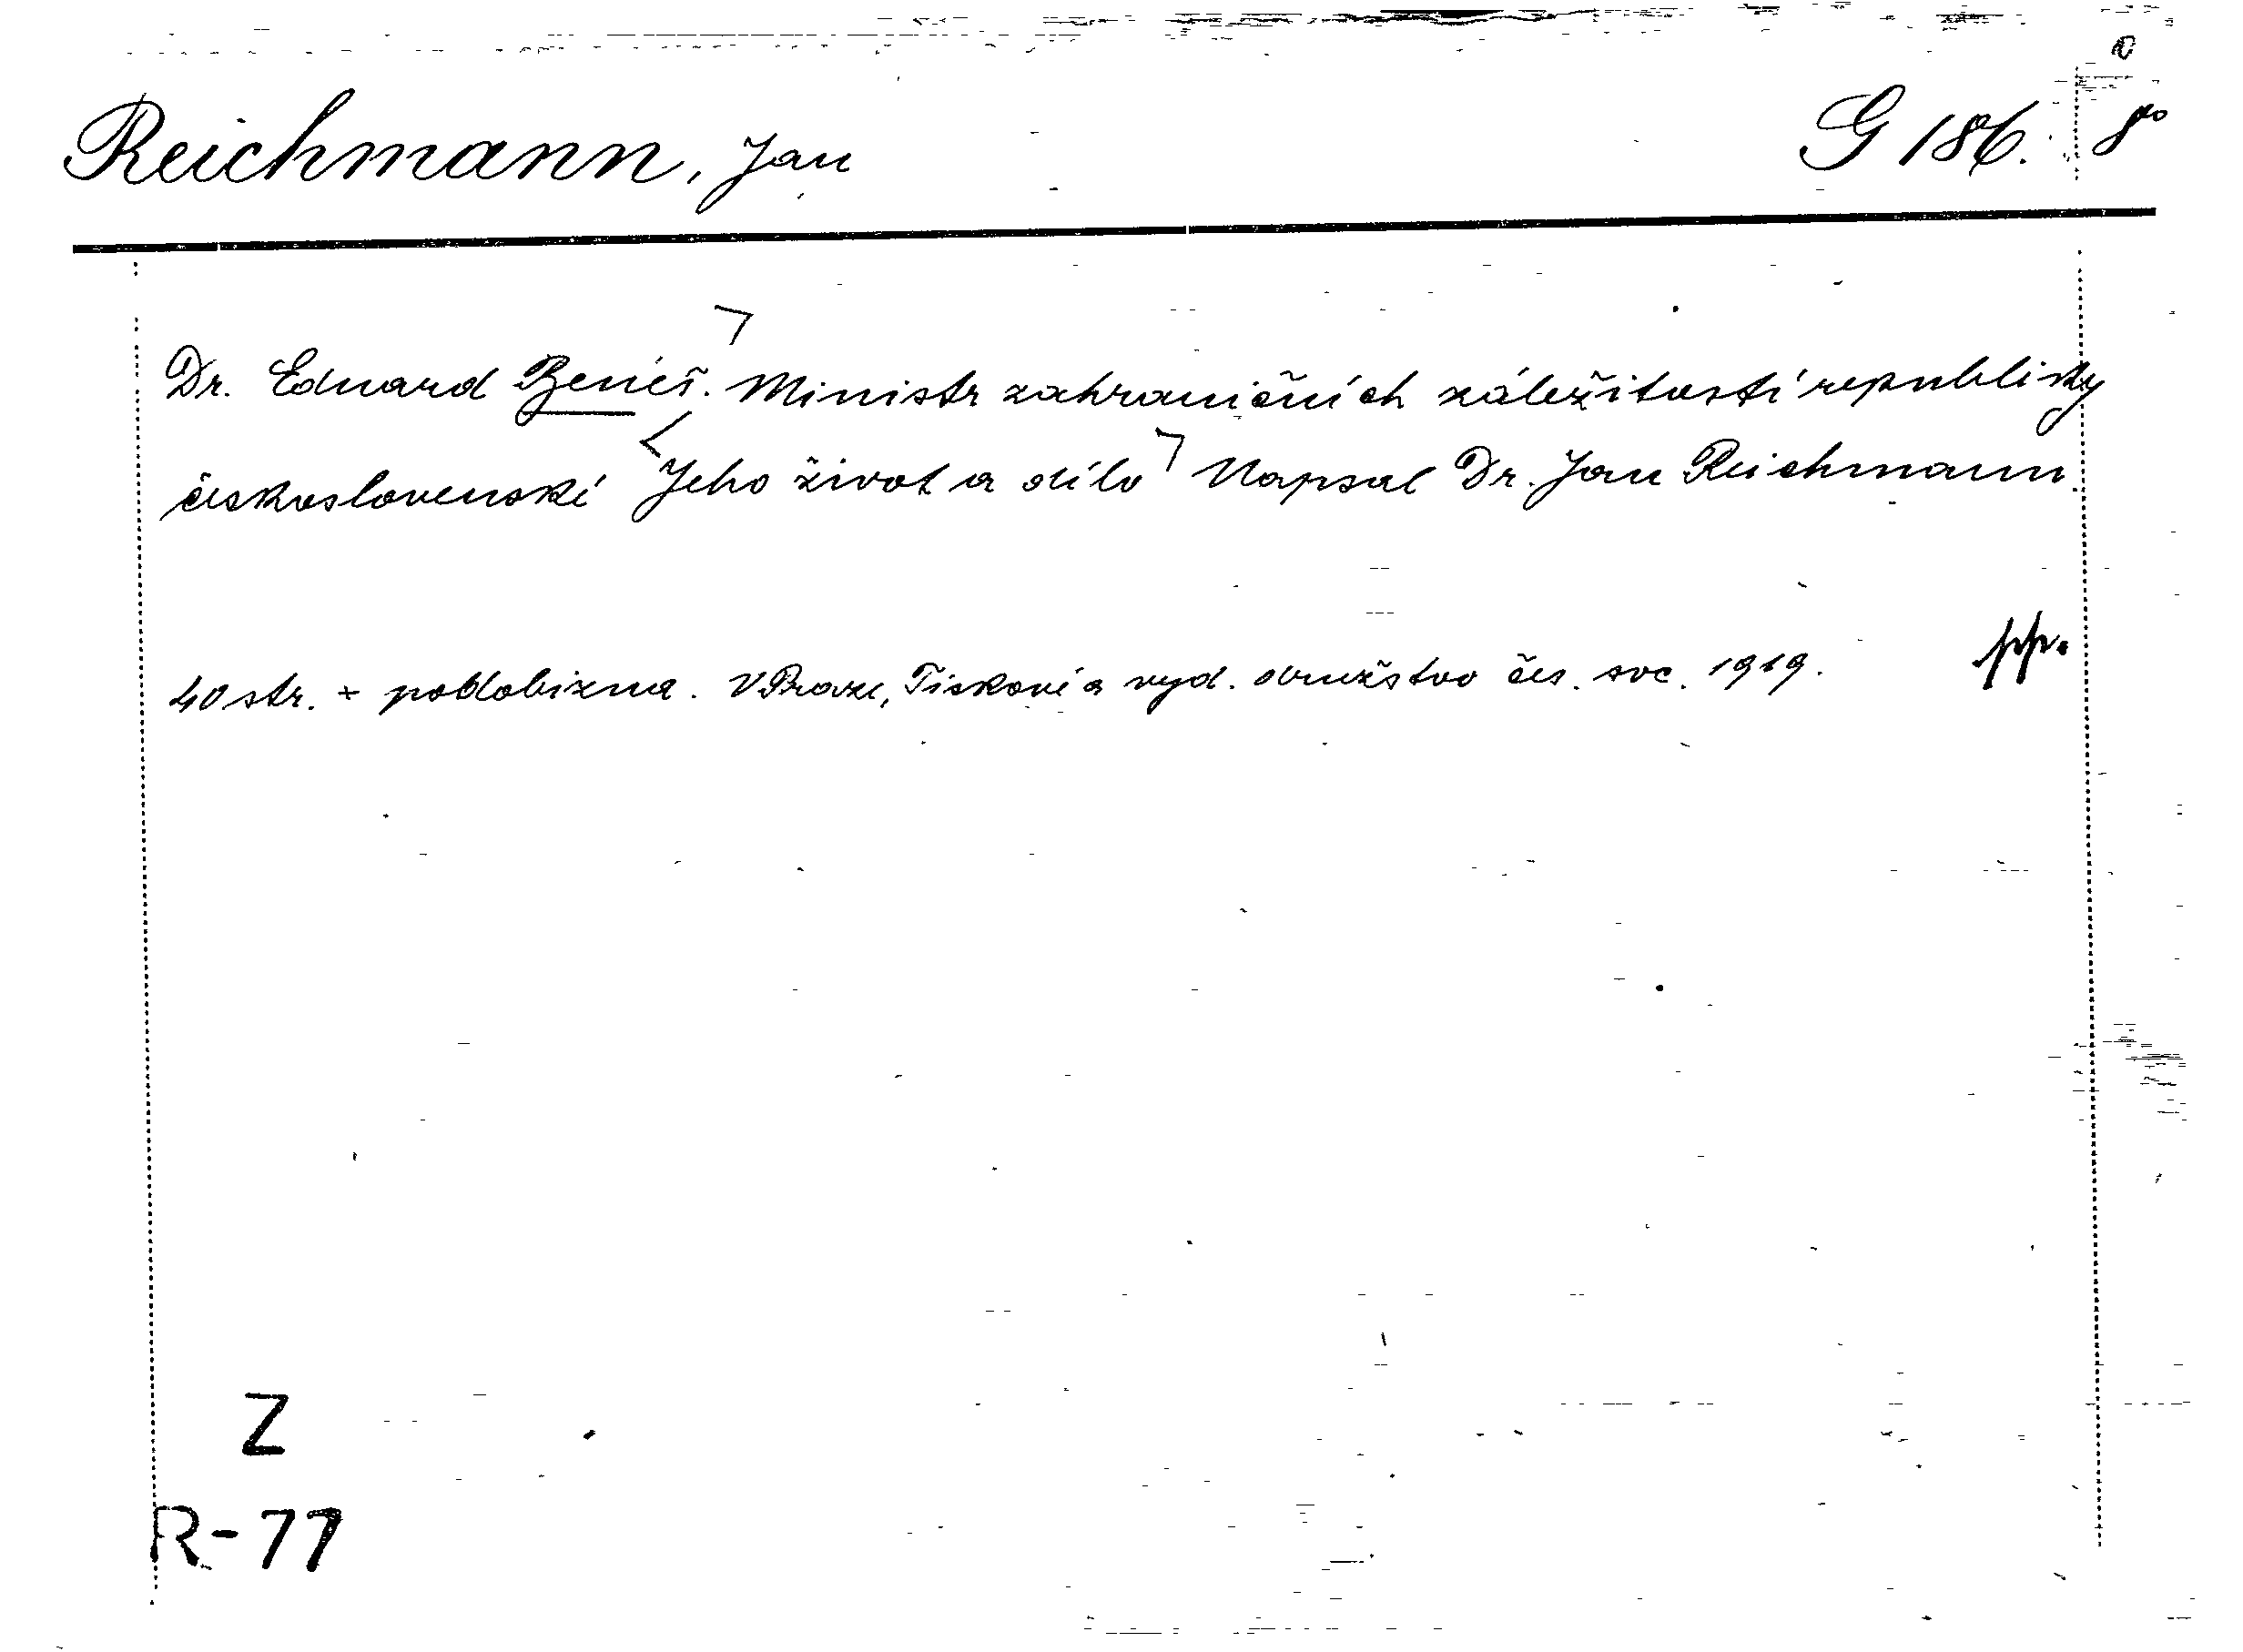 Reichmann, Jan G 186. 8°
Dr. Eduard Beneš. Ministr zahraničních záležitostí republiky
československé Jeho život a dílo Napsal Dr. Jan Reichmann.
40 str. + podobizna. V Praze, Tiskové a vyd. družstvo čes. soc. 1919.
Z
R-77